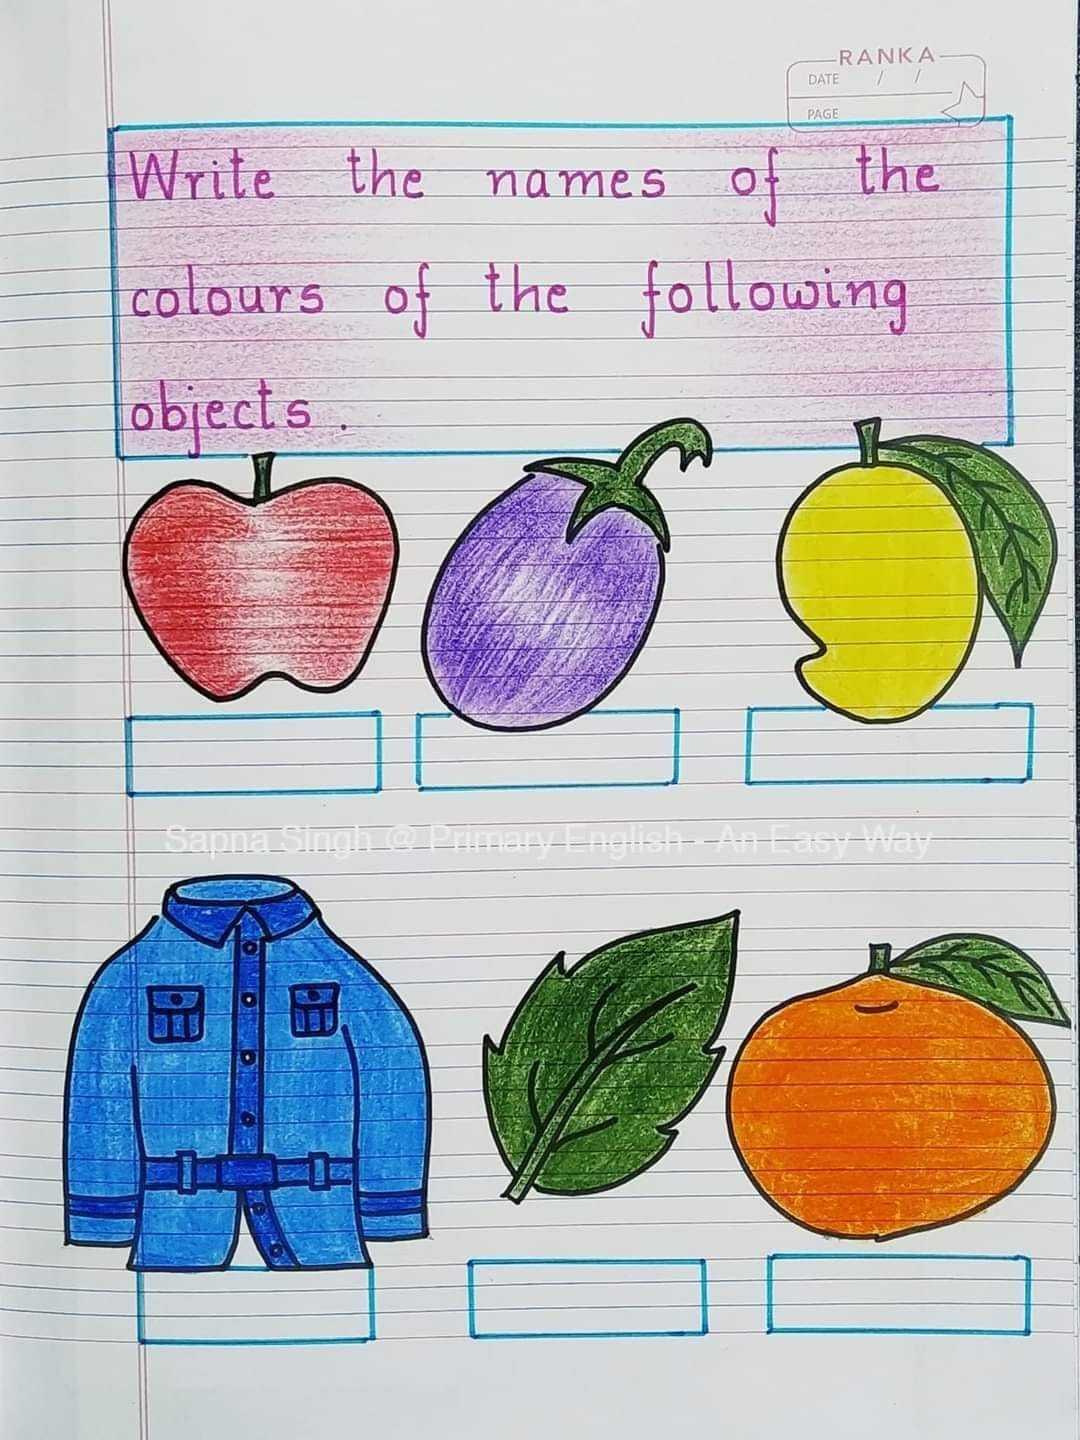 RANKA
DATE / /
PAGE
Write the names of the
colours of the following
objects.
Sapna Singh @ Primary English - An Easy Way